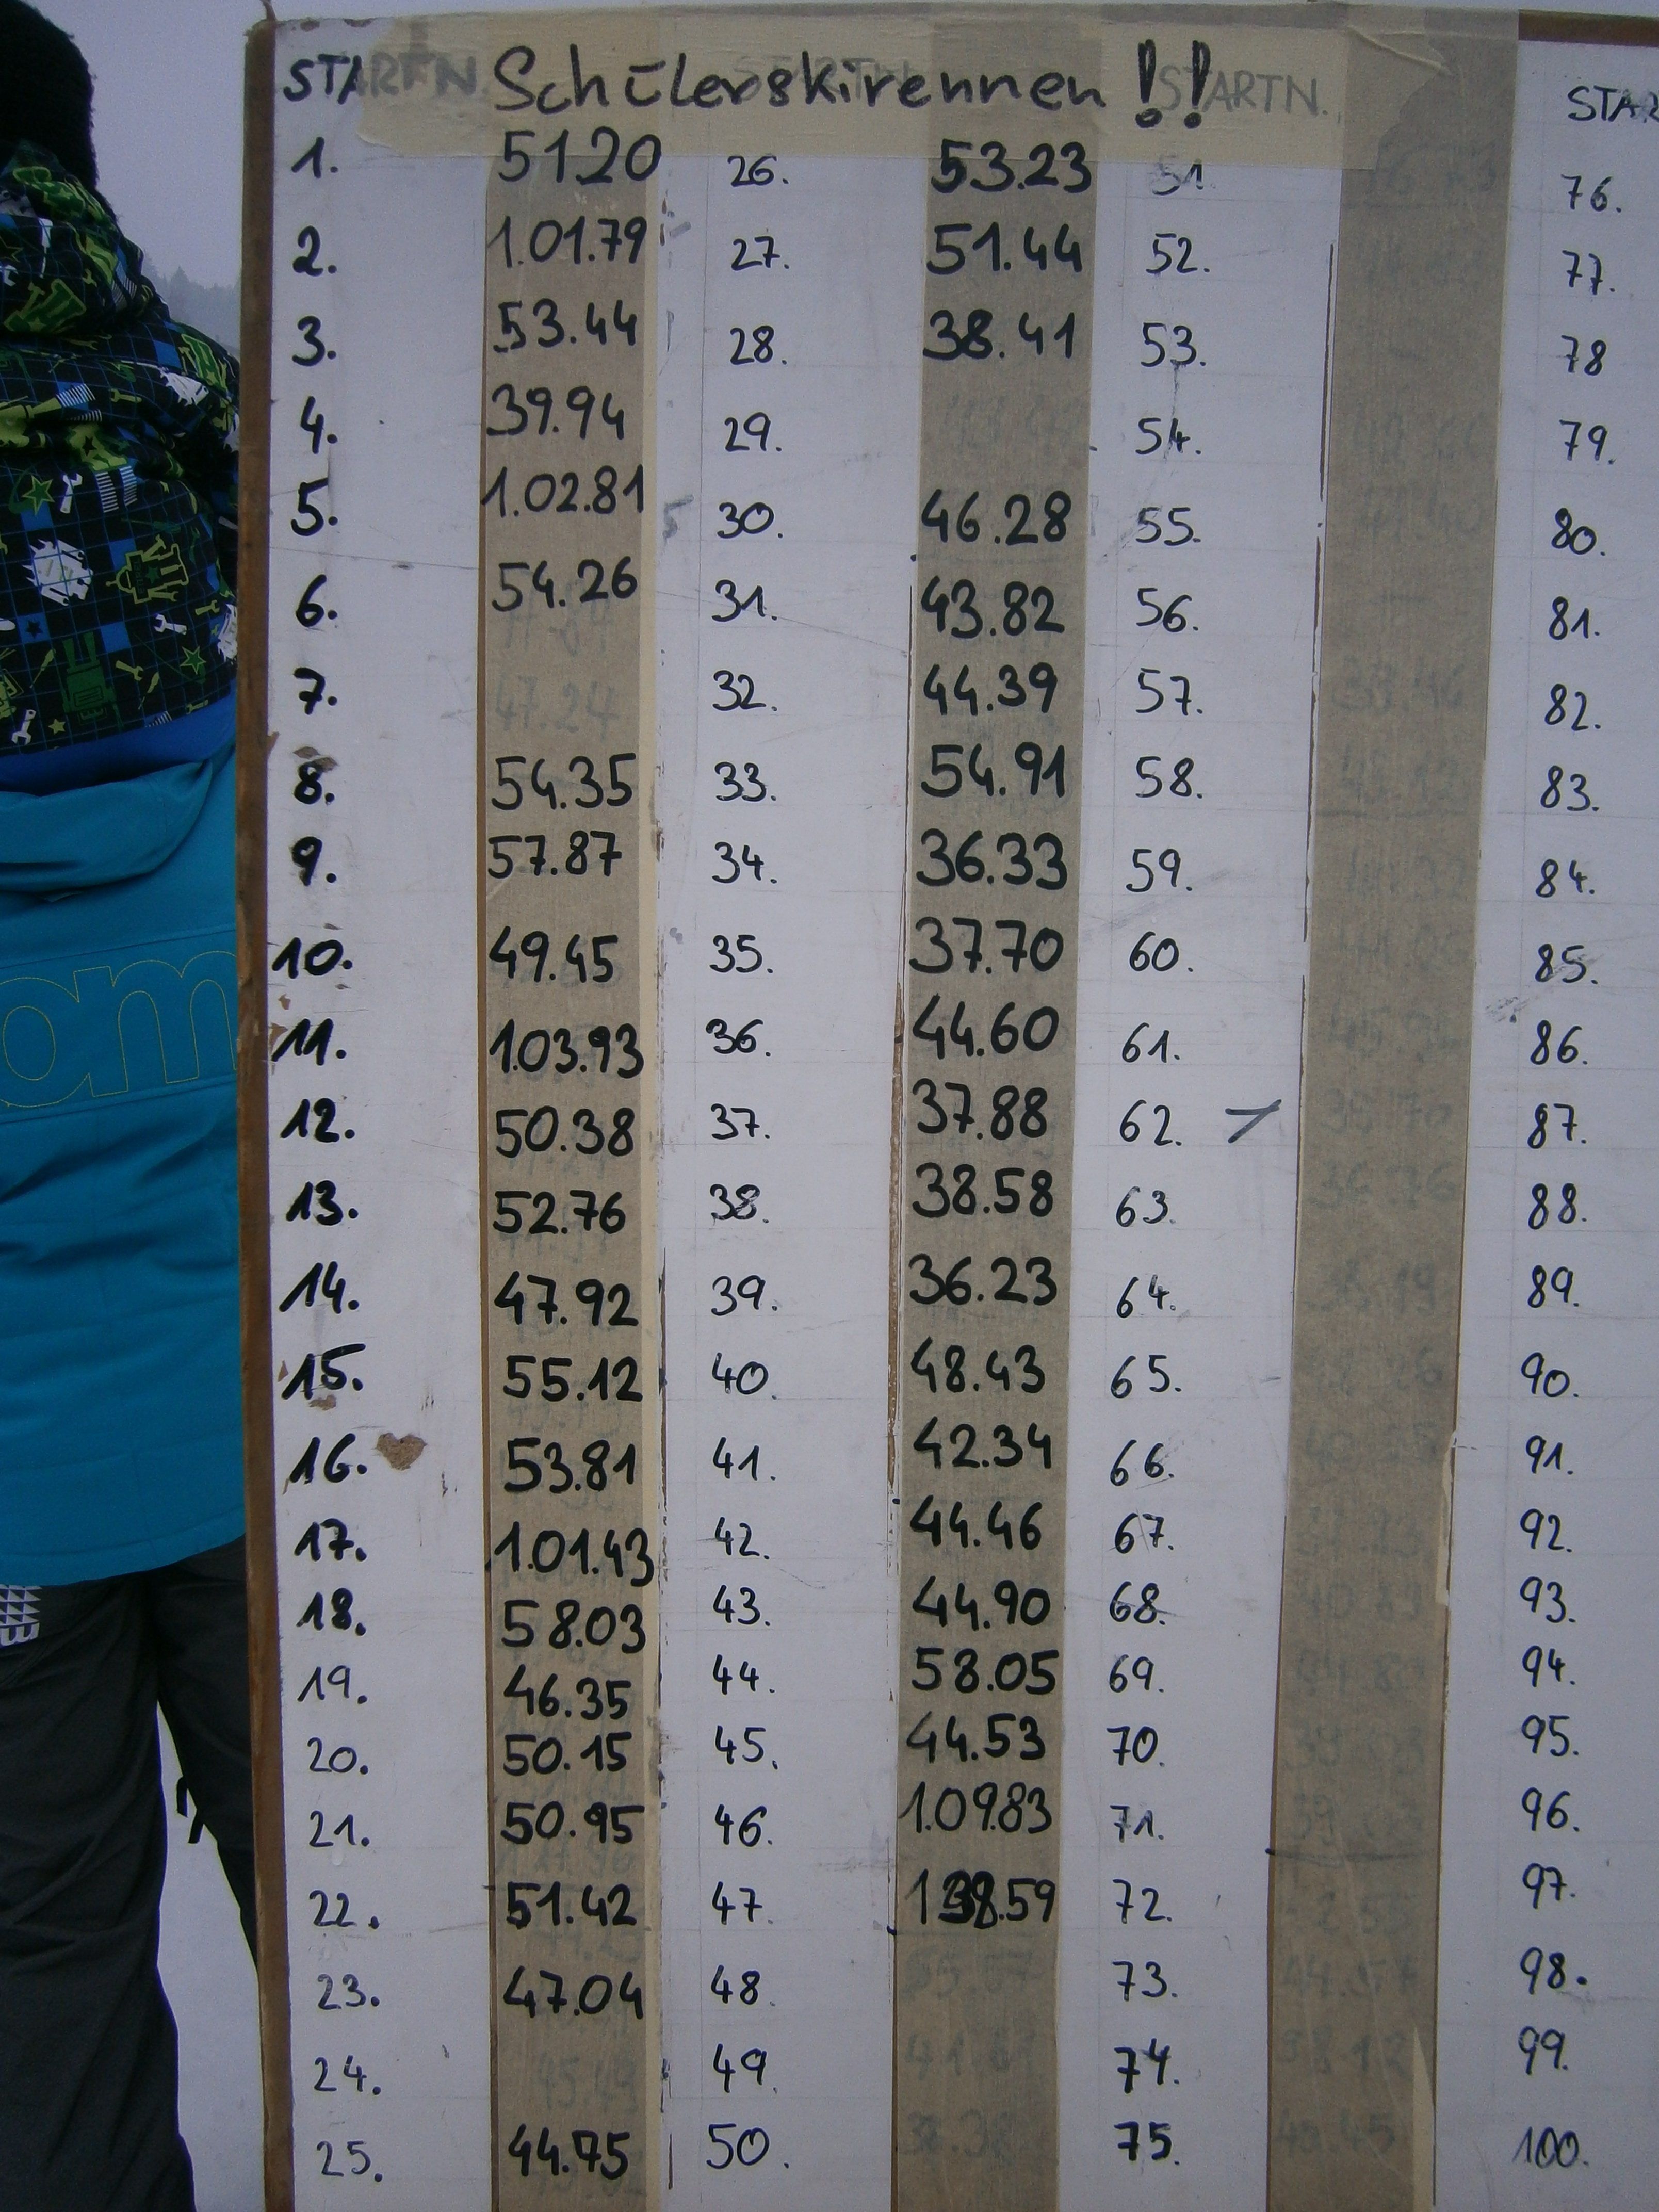 STARTN. Schülerskirennen !! STARTN. STAR
1. 51.20 26. 53.23 51. 76.
2. 1.01.79 27. 51.44 52. 77.
3. 53.44 28. 38.41 53. 78
4. 39.94 29. 54. 79.
5. 1.02.81 30. 46.28 55. 80.
6. 54.26 31. 43.82 56. 81.
7. 32. 44.39 57. 82.
8. 54.35 33. 54.91 58. 83.
9. 57.87 34. 36.33 59. 84.
10. 49.45 35. 37.70 60. 85.
11. 1.03.93 36. 44.60 61. 86.
12. 50.38 37. 37.88 62. 87.
13. 52.76 38. 38.58 63. 88.
14. 47.92 39. 36.23 64. 89.
15. 55.12 40. 48.43 65. 90.
16. 53.81 41. 42.34 66. 91.
17. 1.01.43 42. 44.46 67. 92.
18. 58.03 43. 44.90 68. 93.
19. 46.35 44. 58.05 69. 94.
20. 50.15 45. 44.53 70. 95.
21. 50.95 46. 1.09.83 71. 96.
22. 51.42 47. 72. 97.
23. 47.04 48. 73. 98.
24. 49. 74. 99.
25. 44.75 50. 75. 100.
om